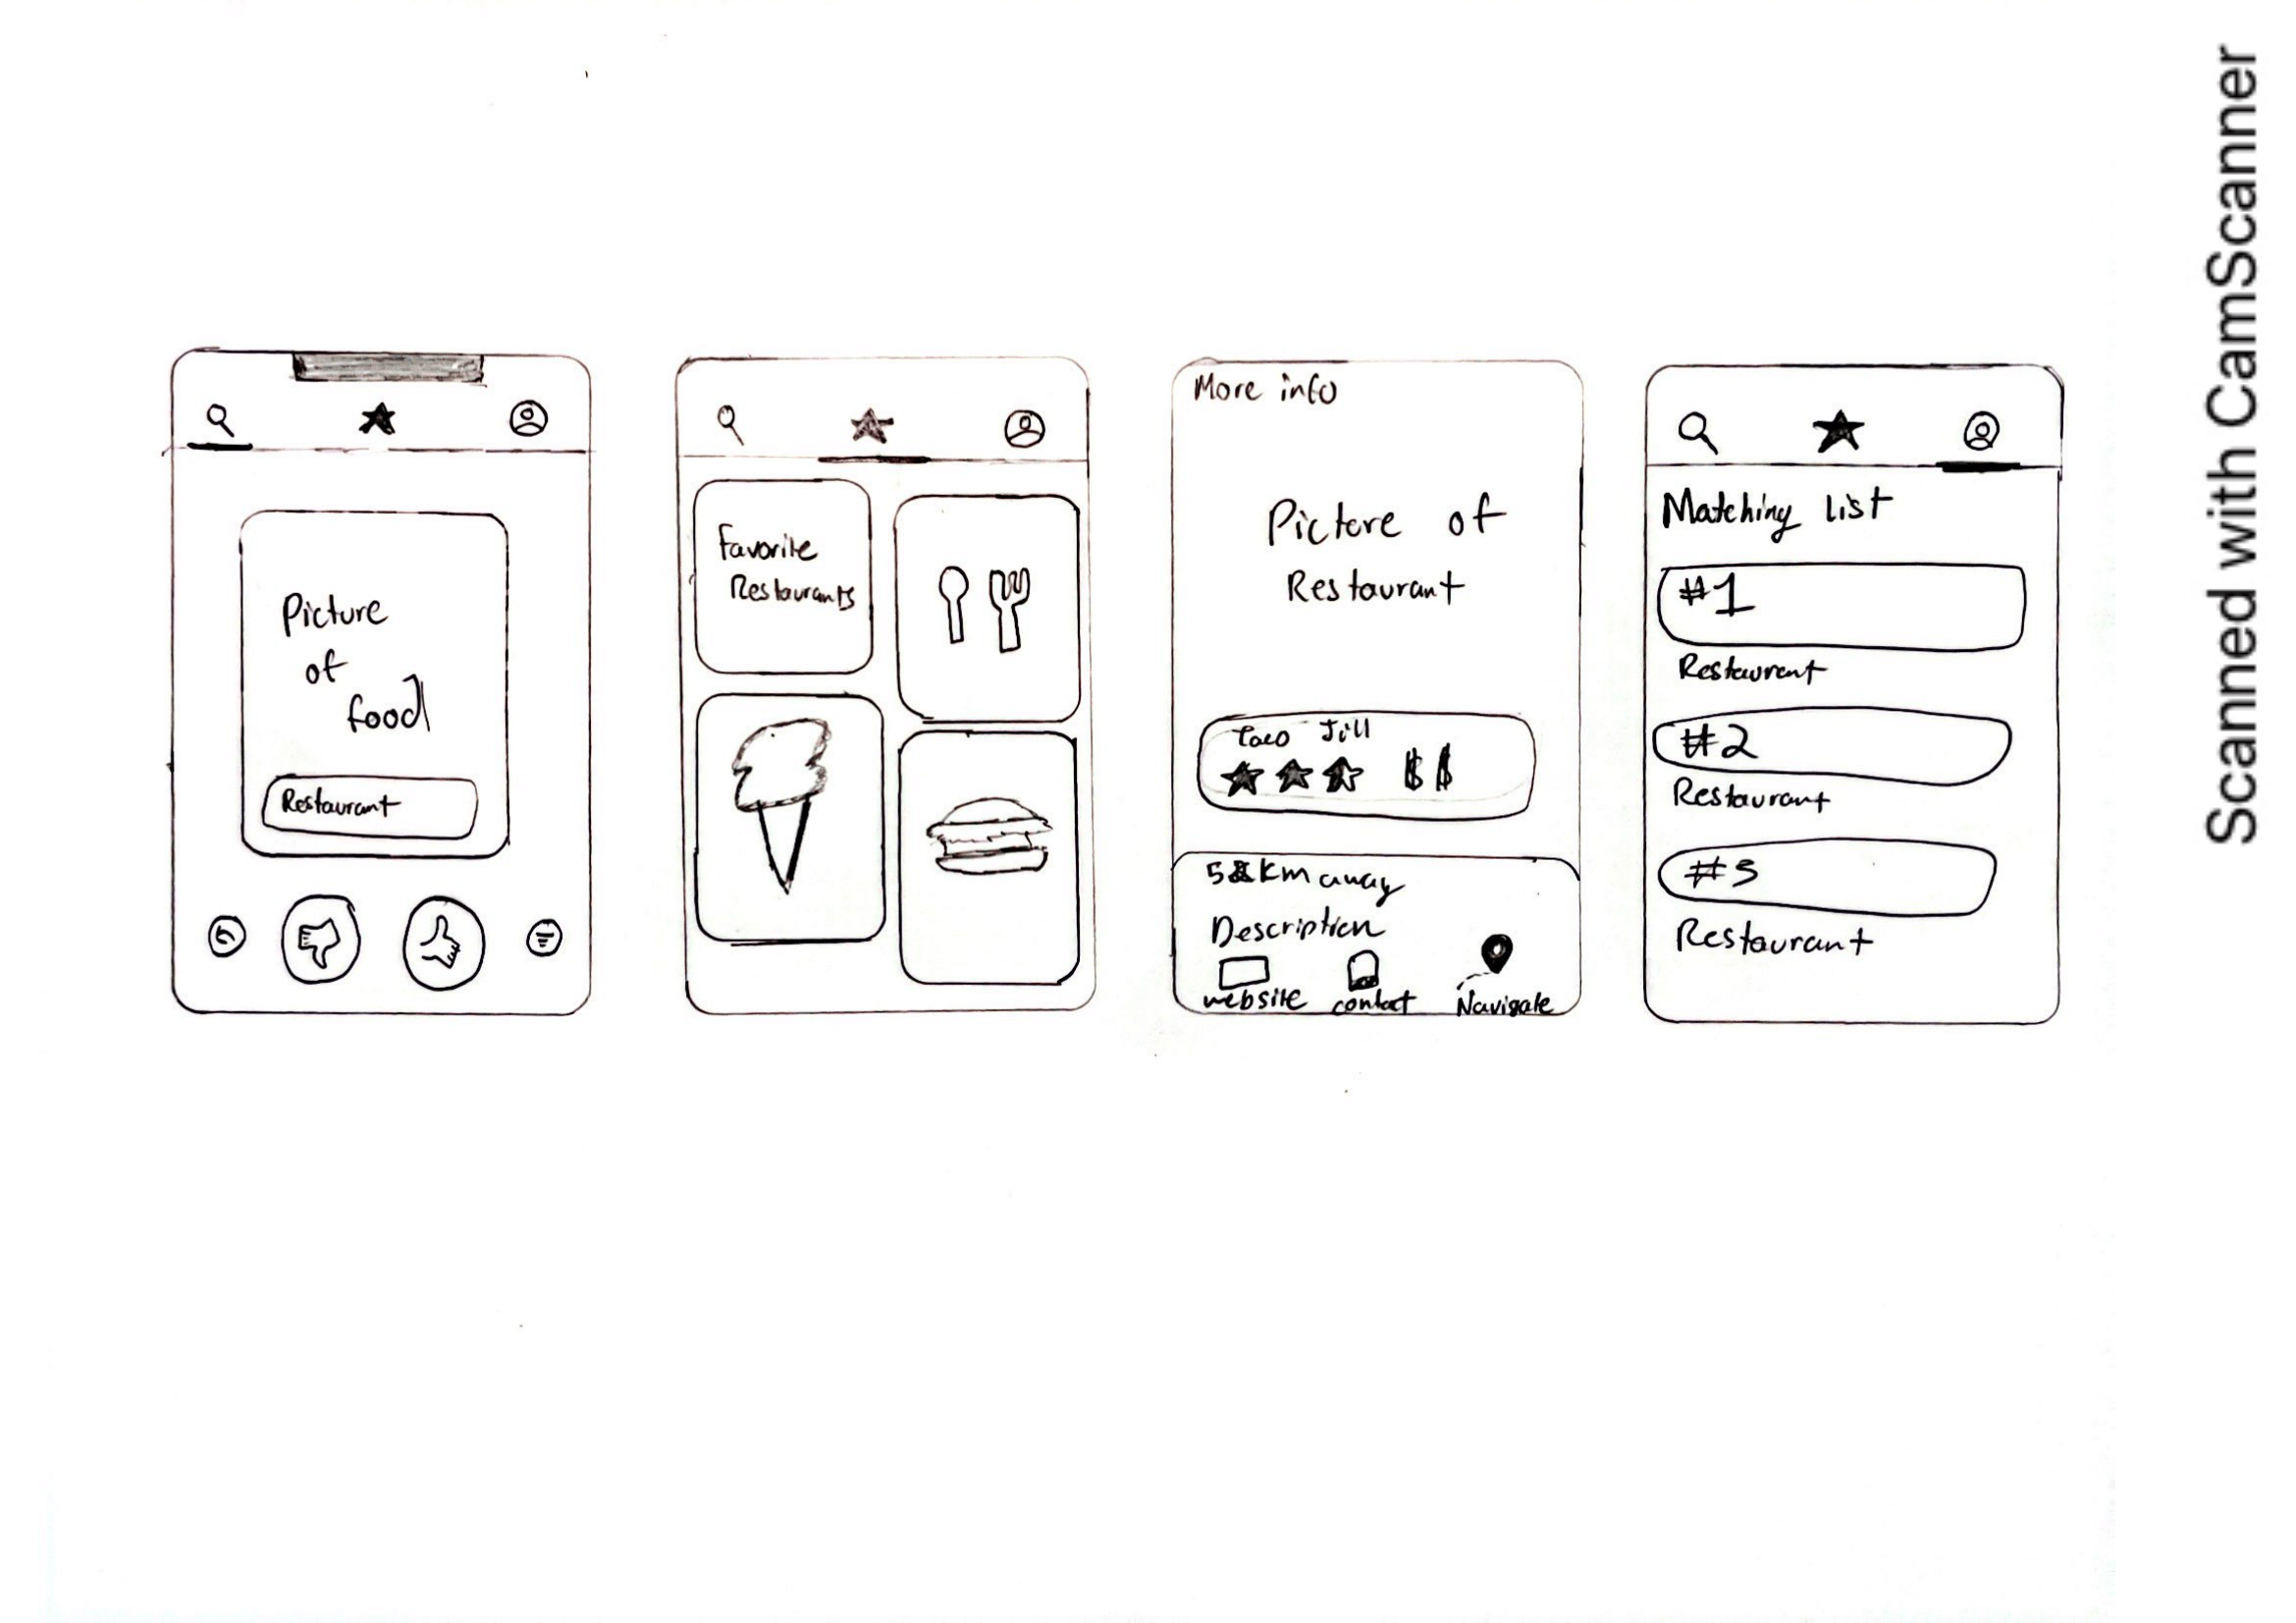 Picture
of
food
Restaurant
Favorite
Restaurants
More info
Picture of
Restaurant
Taco Jill
$$
Km away
Description
website contact Navigate
Matching list
#1
Restaurant
#2
Restaurant
Restaurant
Scanned with CamScanner